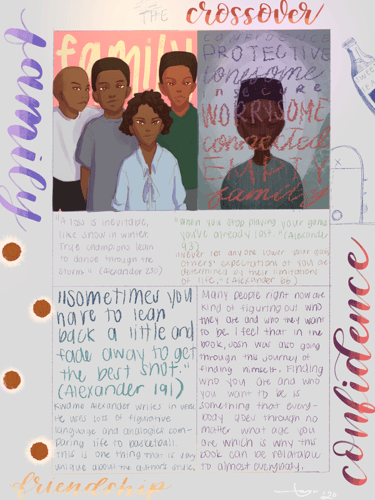 THE crossover
family
family
CONFIDENCE
PROTECTIVE
lonesome
INSECURE
WORRYSOME
connected
EMPTY
family
"A loss is inevitable,
like snow in winter.
True champions learn
to dance through the
storm." (Alexander 230)
"When you stop playing your game
you've already lost." (Alexander
93)
"Never let anyone lower your goals.
Others' expectations of you are
determined by their limitations
of life." (Alexander 66)
"Sometimes you
have to lean
back a little and
fade away to get
the best shot."
(Alexander 191)
Kwame Alexander writes in verse.
He uses lots of figurative
language and analogies com-
paring life to basketball.
this is one thing that is very
unique about the authors style.
Many people right now are
kind of figuring out who
they are and who they want
to be. I feel that in the
book, Josh was also going
through this journey of
finding himself. Finding
who you are and who
you want to be is
something that every-
body goes through no
matter what age you
are which is why this
book can be relatable
to almost everybody.
confidence
friendship